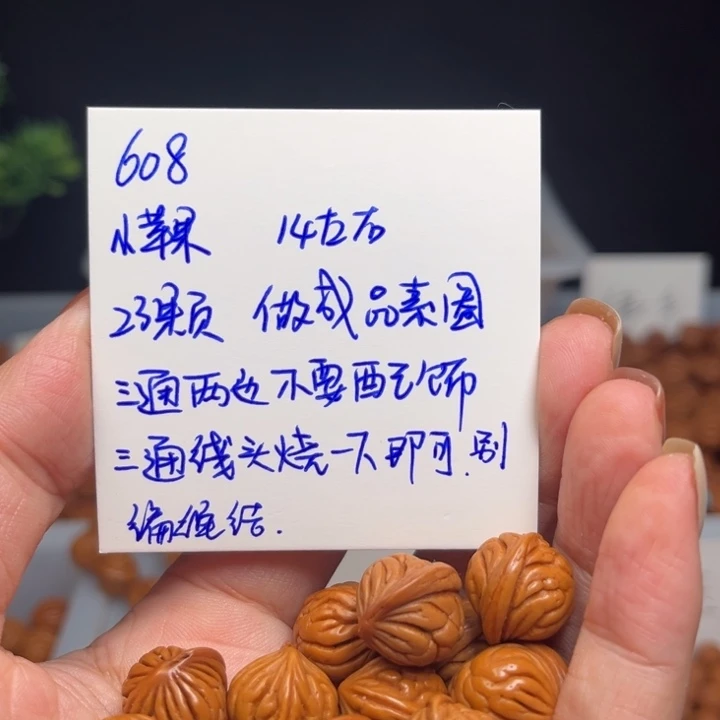 608
小苹果 14左右
23颗 做成品素圈
三通两边不要配饰
三通线头烧一下即可.别
编绳结.